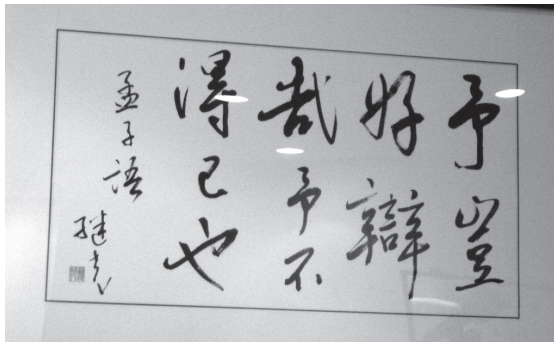 予豈
好辯
哉予不
得已也
孟子語
继尧